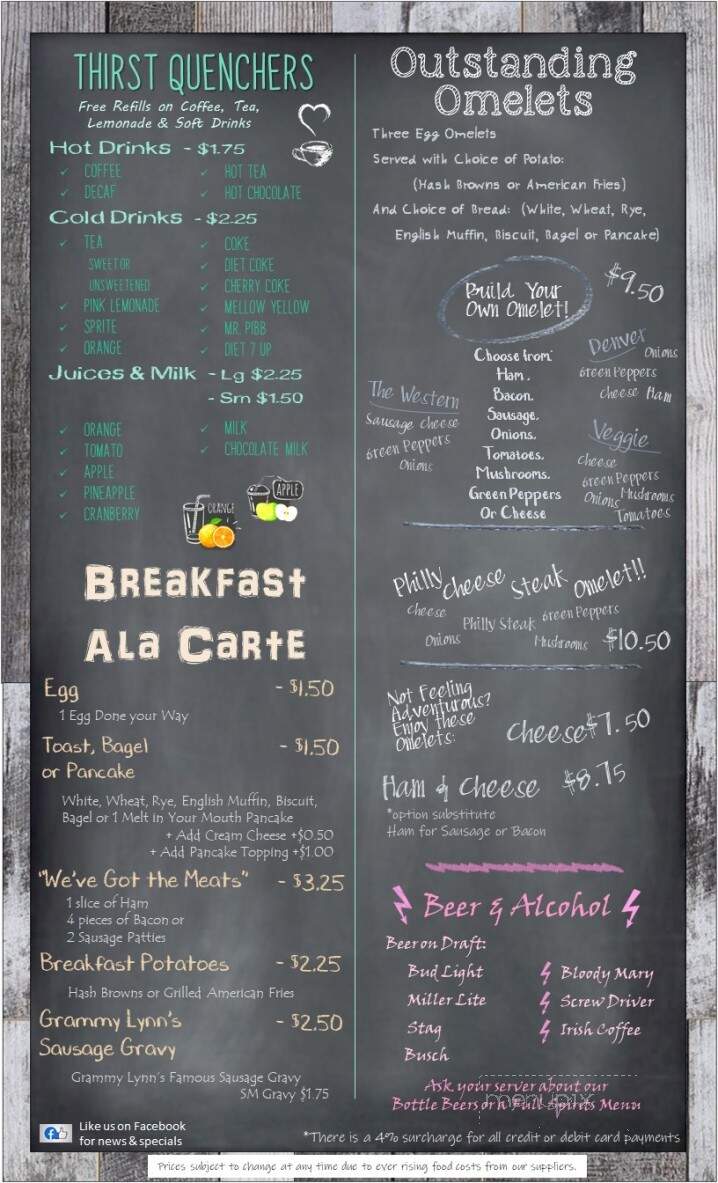 THIRST QUENCHERS
Free Refills on Coffee, Tea,
Lemonade & Soft Drinks
Hot Drinks - $1.75
COFFEE
DECAF
HOT TEA
HOT CHOCOLATE
Cold Drinks - $2.25
TEA
SWEET OR
UNSWEETENED
PINK LEMONADE
SPRITE
ORANGE
COKE
DIET COKE
CHERRY COKE
MELLOW YELLOW
MR. PIBB
DIET 7 UP
Juices & Milk - Lg $2.25
- Sm $1.50
ORANGE
TOMATO
APPLE
PINEAPPLE
CRANBERRY
MILK
CHOCOLATE MILK
ORANGE
APPLE
BREAKFAST
ALA CARTE
Egg - $1.50
1 Egg Done your Way
Toast, Bagel - $1.50
or Pancake
White, Wheat, Rye, English Muffin, Biscuit,
Bagel or 1 Melt in Your Mouth Pancake
+ Add Cream Cheese +$0.50
+ Add Pancake Topping +$1.00
"We've Got the Meats" - $3.25
1 slice of Ham
4 pieces of Bacon or
2 Sausage Patties
Breakfast Potatoes - $2.25
Hash Browns or Grilled American Fries
Grammy Lynn's - $2.50
Sausage Gravy
Grammy Lynn's Famous Sausage Gravy
SM Gravy $1.75
Like us on Facebook
for news & specials
Outstanding
Omelets
Three Egg Omelets
Served with Choice of Potato:
(Hash Browns or American Fries)
And Choice of Bread: (White, Wheat, Rye,
English Muffin, Biscuit, Bagel or Pancake)
Build Your
Own Omelet!
$9.50
Choose from:
Ham,
Bacon,
Sausage,
Onions,
Tomatoes,
Mushrooms,
Green Peppers
Or Cheese
The Western
Sausage Cheese
Green Peppers
Onions
Denver
Onions
Green Peppers
Cheese Ham
Veggie
Cheese
Green Peppers
Onions Mushrooms
Tomatoes
Philly Cheese Steak Omelet!!
Cheese
Philly Steak Green Peppers
Onions
Mushrooms $10.50
Not Feeling
Adventurous?
Enjoy these
Omelets:
Cheese $7.50
Ham & Cheese $8.75
*option substitute
Ham for Sausage or Bacon
Beer & Alcohol
Beer on Draft:
Bud Light
Miller Lite
Stag
Busch
Bloody Mary
Screw Driver
Irish Coffee
Ask your server about our
Bottle Beers or a Full Spirits Menu
menupix
*There is a 4% surcharge for all credit or debit card payments
Prices subject to change at any time due to ever rising food costs from our suppliers.